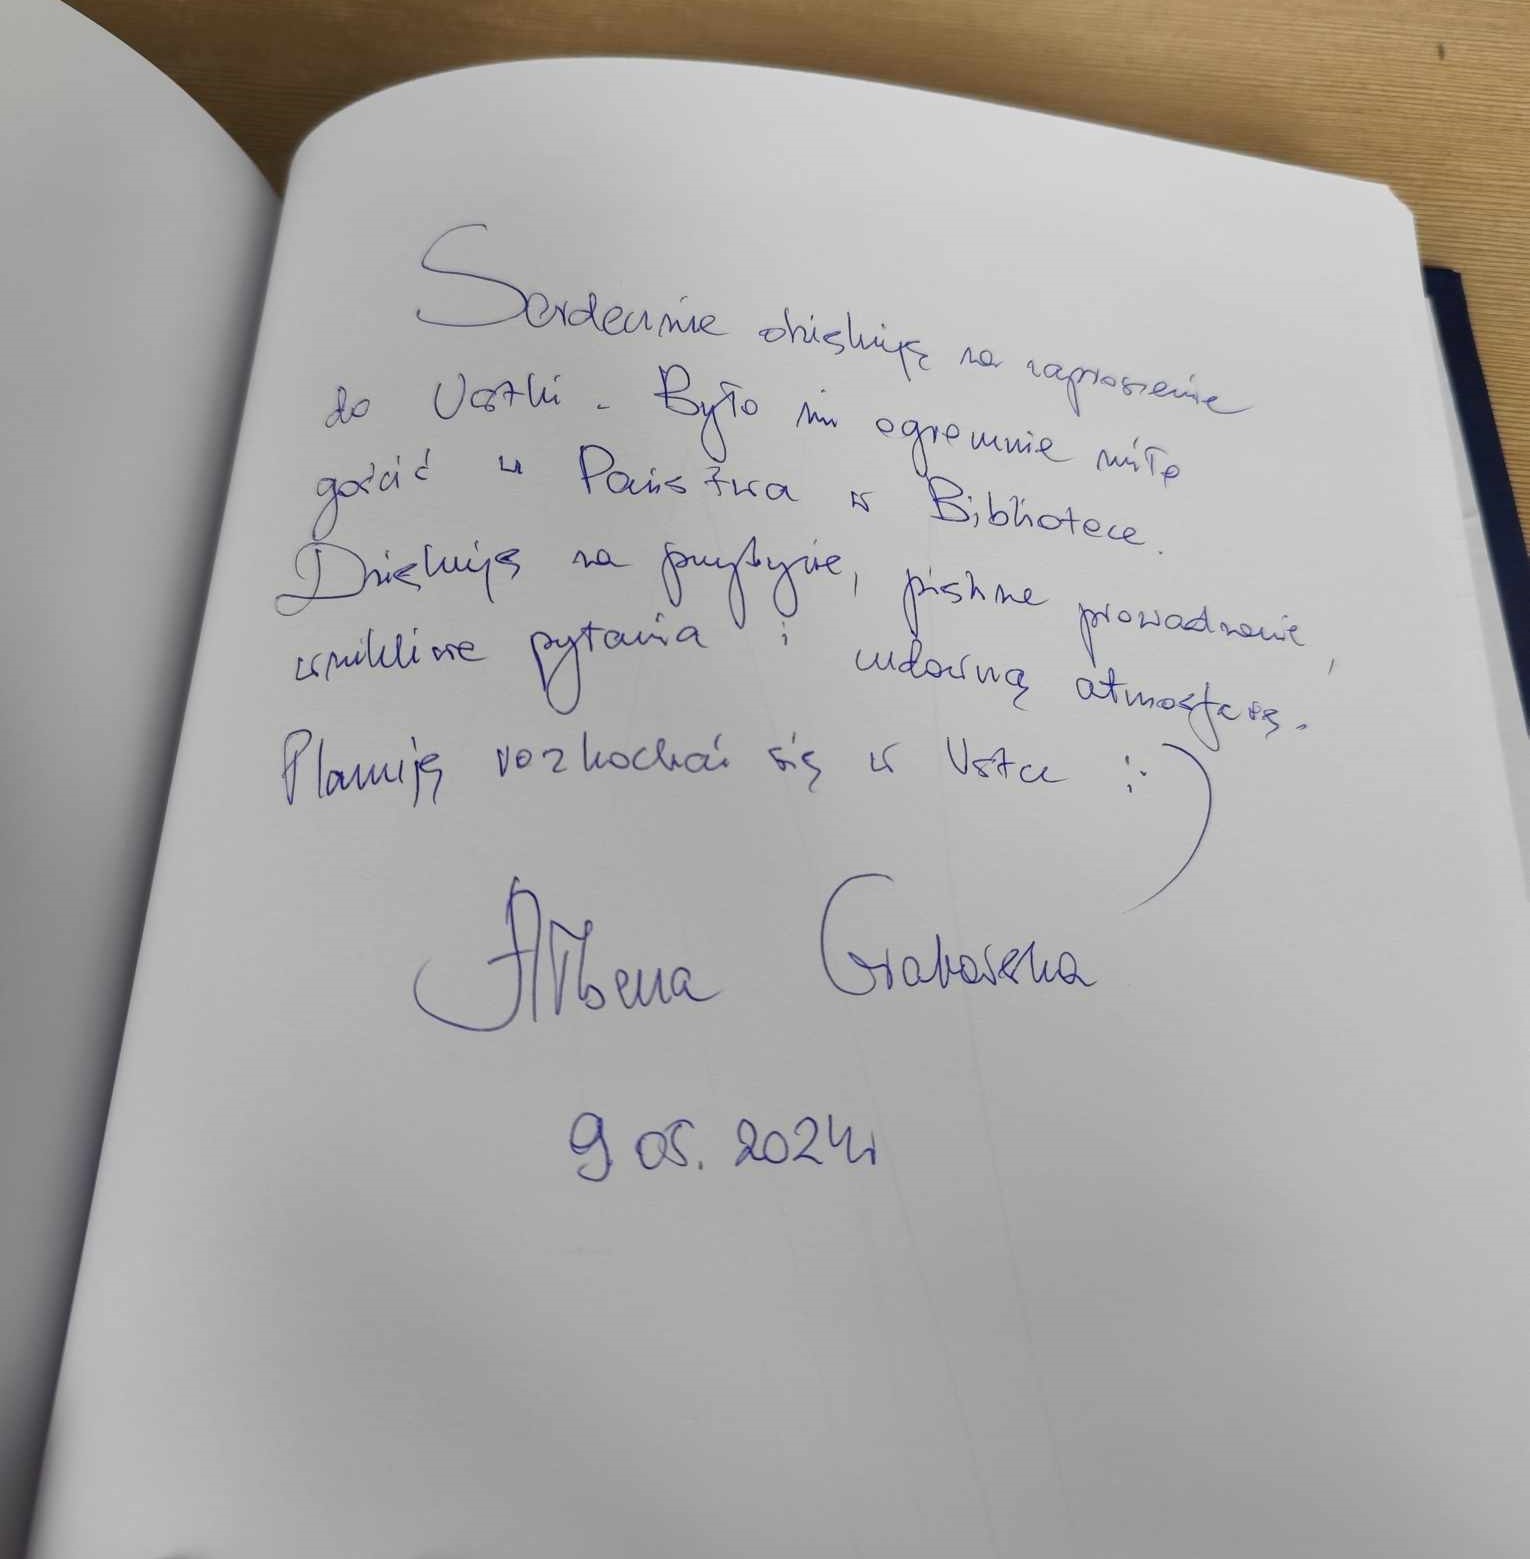 Serdecznie dziękuję za zaproszenie
do Ustki. Było mi ogromnie miło
gościć u Państwa w Bibliotece.
Dziękuję za przybycie, piękne prowadzenie,
wnikliwe pytania i cudowną atmosferę.
Planuję rozkochać się w Ustce :)
Ałbena Grabowska
9.05.2024r